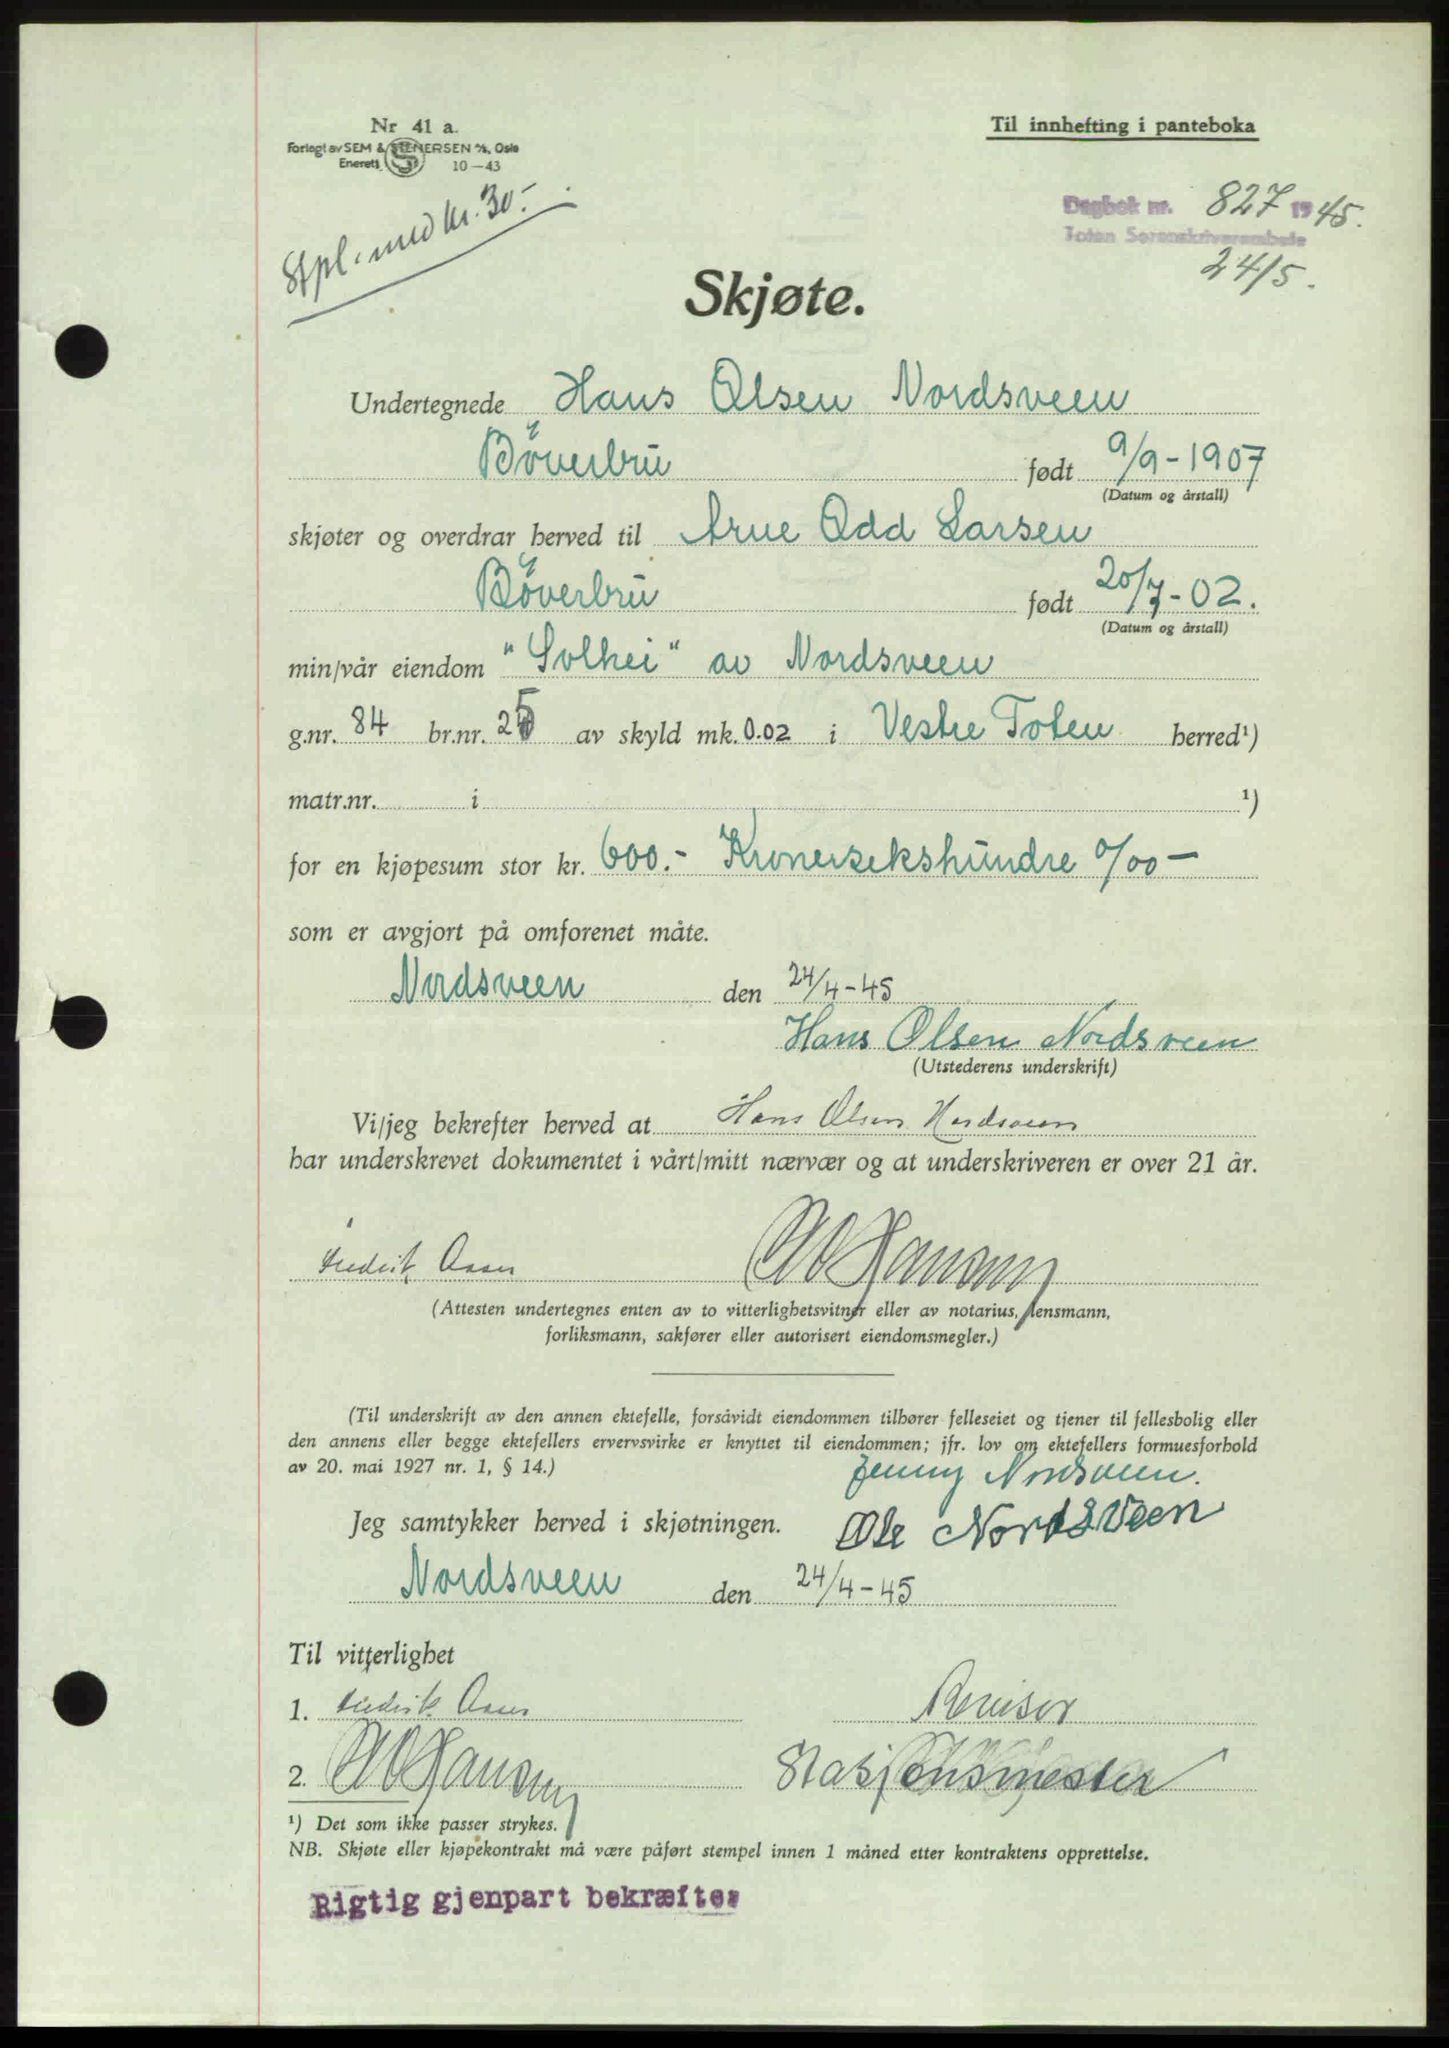 Nr 41 a.
Forlagt av SEM & STENERSEN A/S, Oslo
Enerett 10-43
Til innhefting i panteboka
Stpl. med kr. 30.-
Dagbok nr. 827 1945.
Toten Sorenskriverembete
24/5.
Skjøte.
Undertegnede Hans Olsen Nordsveen
Böverbru født 9/9-1907
(Datum og årstall)
skjøter og overdrar herved til Arne Odd Larsen
Böverbru født 20/7-02.
(Datum og årstall)
min/vår eiendom "Solhei" av Nordsveen
g.nr. 84 br.nr. 25 av skyld mk. 0.02 i Vestre Toten herred¹)
matr.nr. i ¹)
for en kjøpesum stor kr. 600.- Kronersekshundre 0/00 —
som er avgjort på omforenet måte.
Nordsveen den 24/4-45
Hans Olsen Nordsveen
(Utstederens underskrift)
Vi/jeg bekrefter herved at Hans Olsen Nordsveen
har underskrevet dokumentet i vårt/mitt nærvær og at underskriveren er over 21 år.
Fredrik Hansen
(Attesten undertegnes enten av to vitterlighetsvitner eller av notarius, lensmann,
forliksmann, sakfører eller autorisert eiendomsmegler.)
(Til underskrift av den annen ektefelle, forsåvidt eiendommen tilhører felleseiet og tjener til fellesbolig eller
den annens eller begge ektefellers ervervsvirke er knyttet til eiendommen; jfr. lov om ektefellers formuesforhold
av 20. mai 1927 nr. 1, § 14.)
Jenny Nordsveen.
Jeg samtykker herved i skjøtningen. Ole Nordsveen
Nordsveen den 24/4-45
Til vitterlighet
1. Fredrik Revisor
2. Hansen Stasjonsmester
¹) Det som ikke passer strykes.
NB. Skjøte eller kjøpekontrakt må være påført stempel innen 1 måned etter kontraktens opprettelse.
Rigtig gjenpart bekræftes